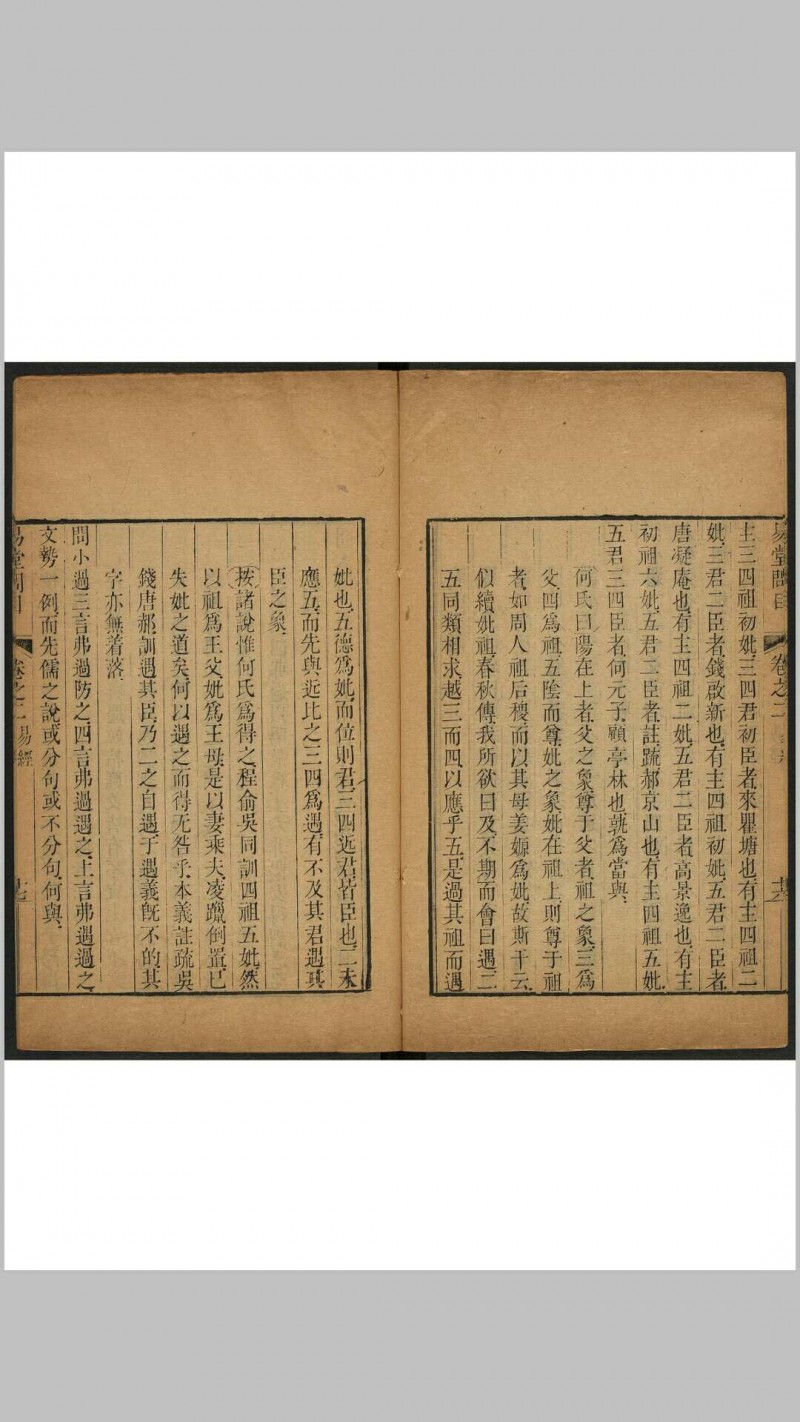 易堂問目 卷之二 易經 十六
主三四祖初妣三四君初臣者來瞿塘也有主四祖二
妣三君二臣者錢啟新也有主四祖初妣五君二臣者
唐凝庵也有主四祖二妣五君二臣者高景逸也有主
初祖六妣五君二臣者註疏郝京山也有主四祖五妣
五君三四臣者何元子顧亭林也孰為當與
何氏曰陽在上者父之象尊于父者祖之象三為
父四為祖五陰而尊妣之象妣在祖上則尊于祖
者如周人祖后稷而以其母姜嫄為妣故斯干云
似續妣祖春秋傳我所欲曰及不期而會曰遇二
五同類相求越三而四以應乎五是過其祖而遇
妣也五德為妣而位則君三四近君皆臣也二未
應五而先與近比之三四為遇有不及其君遇其
臣之象
按諸說惟何氏為得之程俞吳同訓四祖五妣然
以祖為王父妣為王母是以妻乘夫凌躐倒置已
失妣之道矣何以遇之而得无咎乎本義註疏吳
錢唐郝訓遇其臣乃二之自遇于遇義既不的其
字亦無着落
問小過三言弗過防之四言弗過遇之上言弗遇過之
文勢一例而先儒之說或分句或不分句何與
易堂問目 卷之二 易經 十七